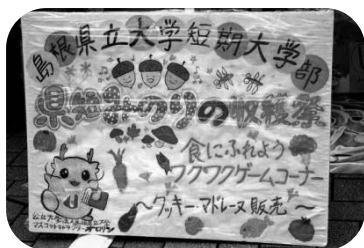 島根県立大学短期大学部
県短どんぐりの収穫祭
食にふれよう
ワクワクゲームコーナー
〜クッキー・マドレーヌ販売〜
公立大学法人島根県立大学
マスコットキャラクター オロリン